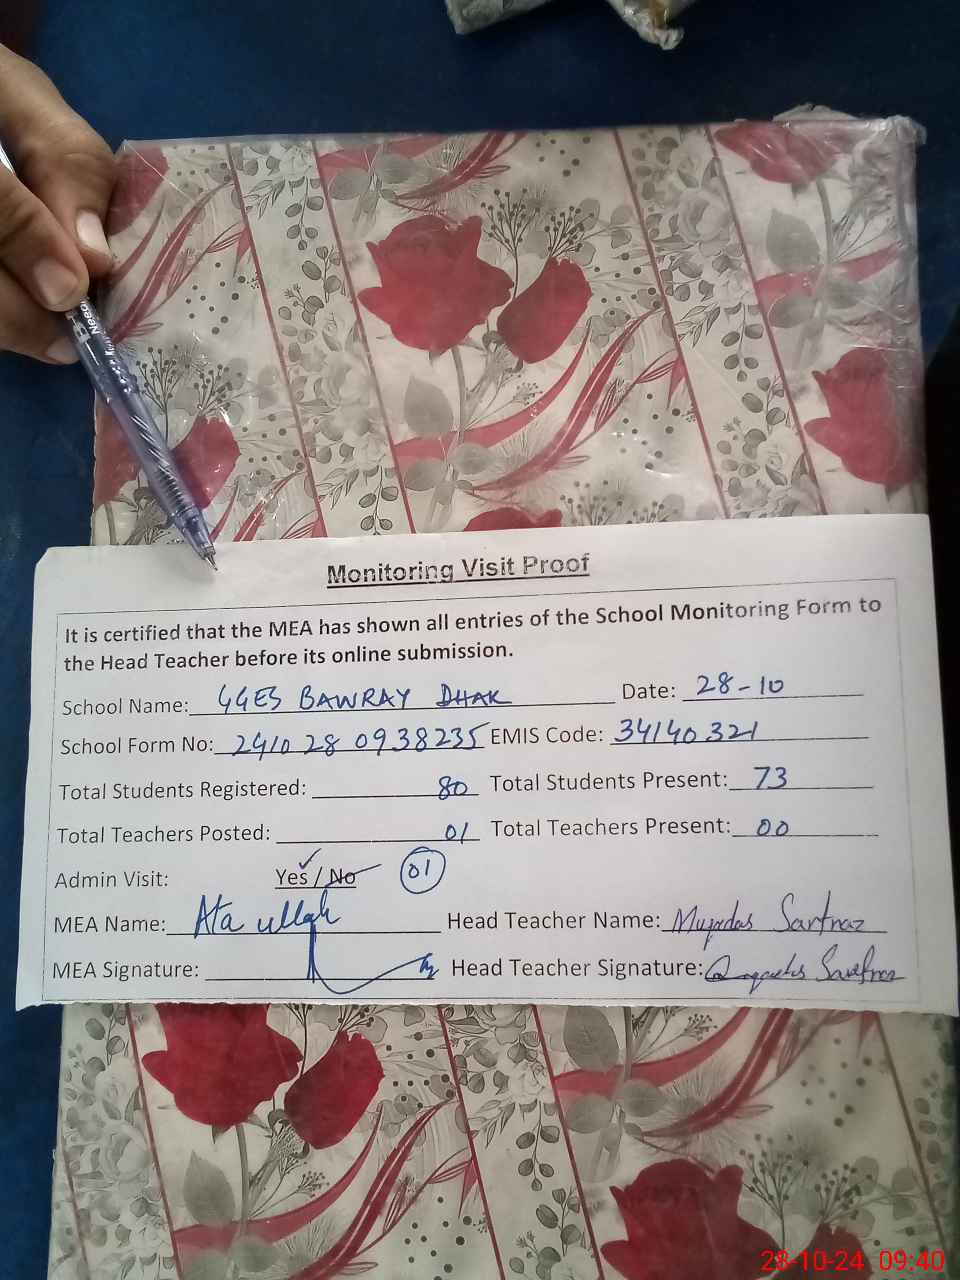 Monitoring Visit Proof
It is certified that the MEA has shown all entries of the School Monitoring Form to
the Head Teacher before its online submission.
School Name: GGES BAWRAY DHAK Date: 28-10
School Form No: 2410 28 0938235 EMIS Code: 34140321
Total Students Registered: 80 Total Students Present: 73
Total Teachers Posted: 01 Total Teachers Present: 00
Admin Visit: Yes / No 01
MEA Name: Ata ullah Head Teacher Name: Muqadas Sarfraz
MEA Signature: Head Teacher Signature: Sarfraz
28-10-24 09:40